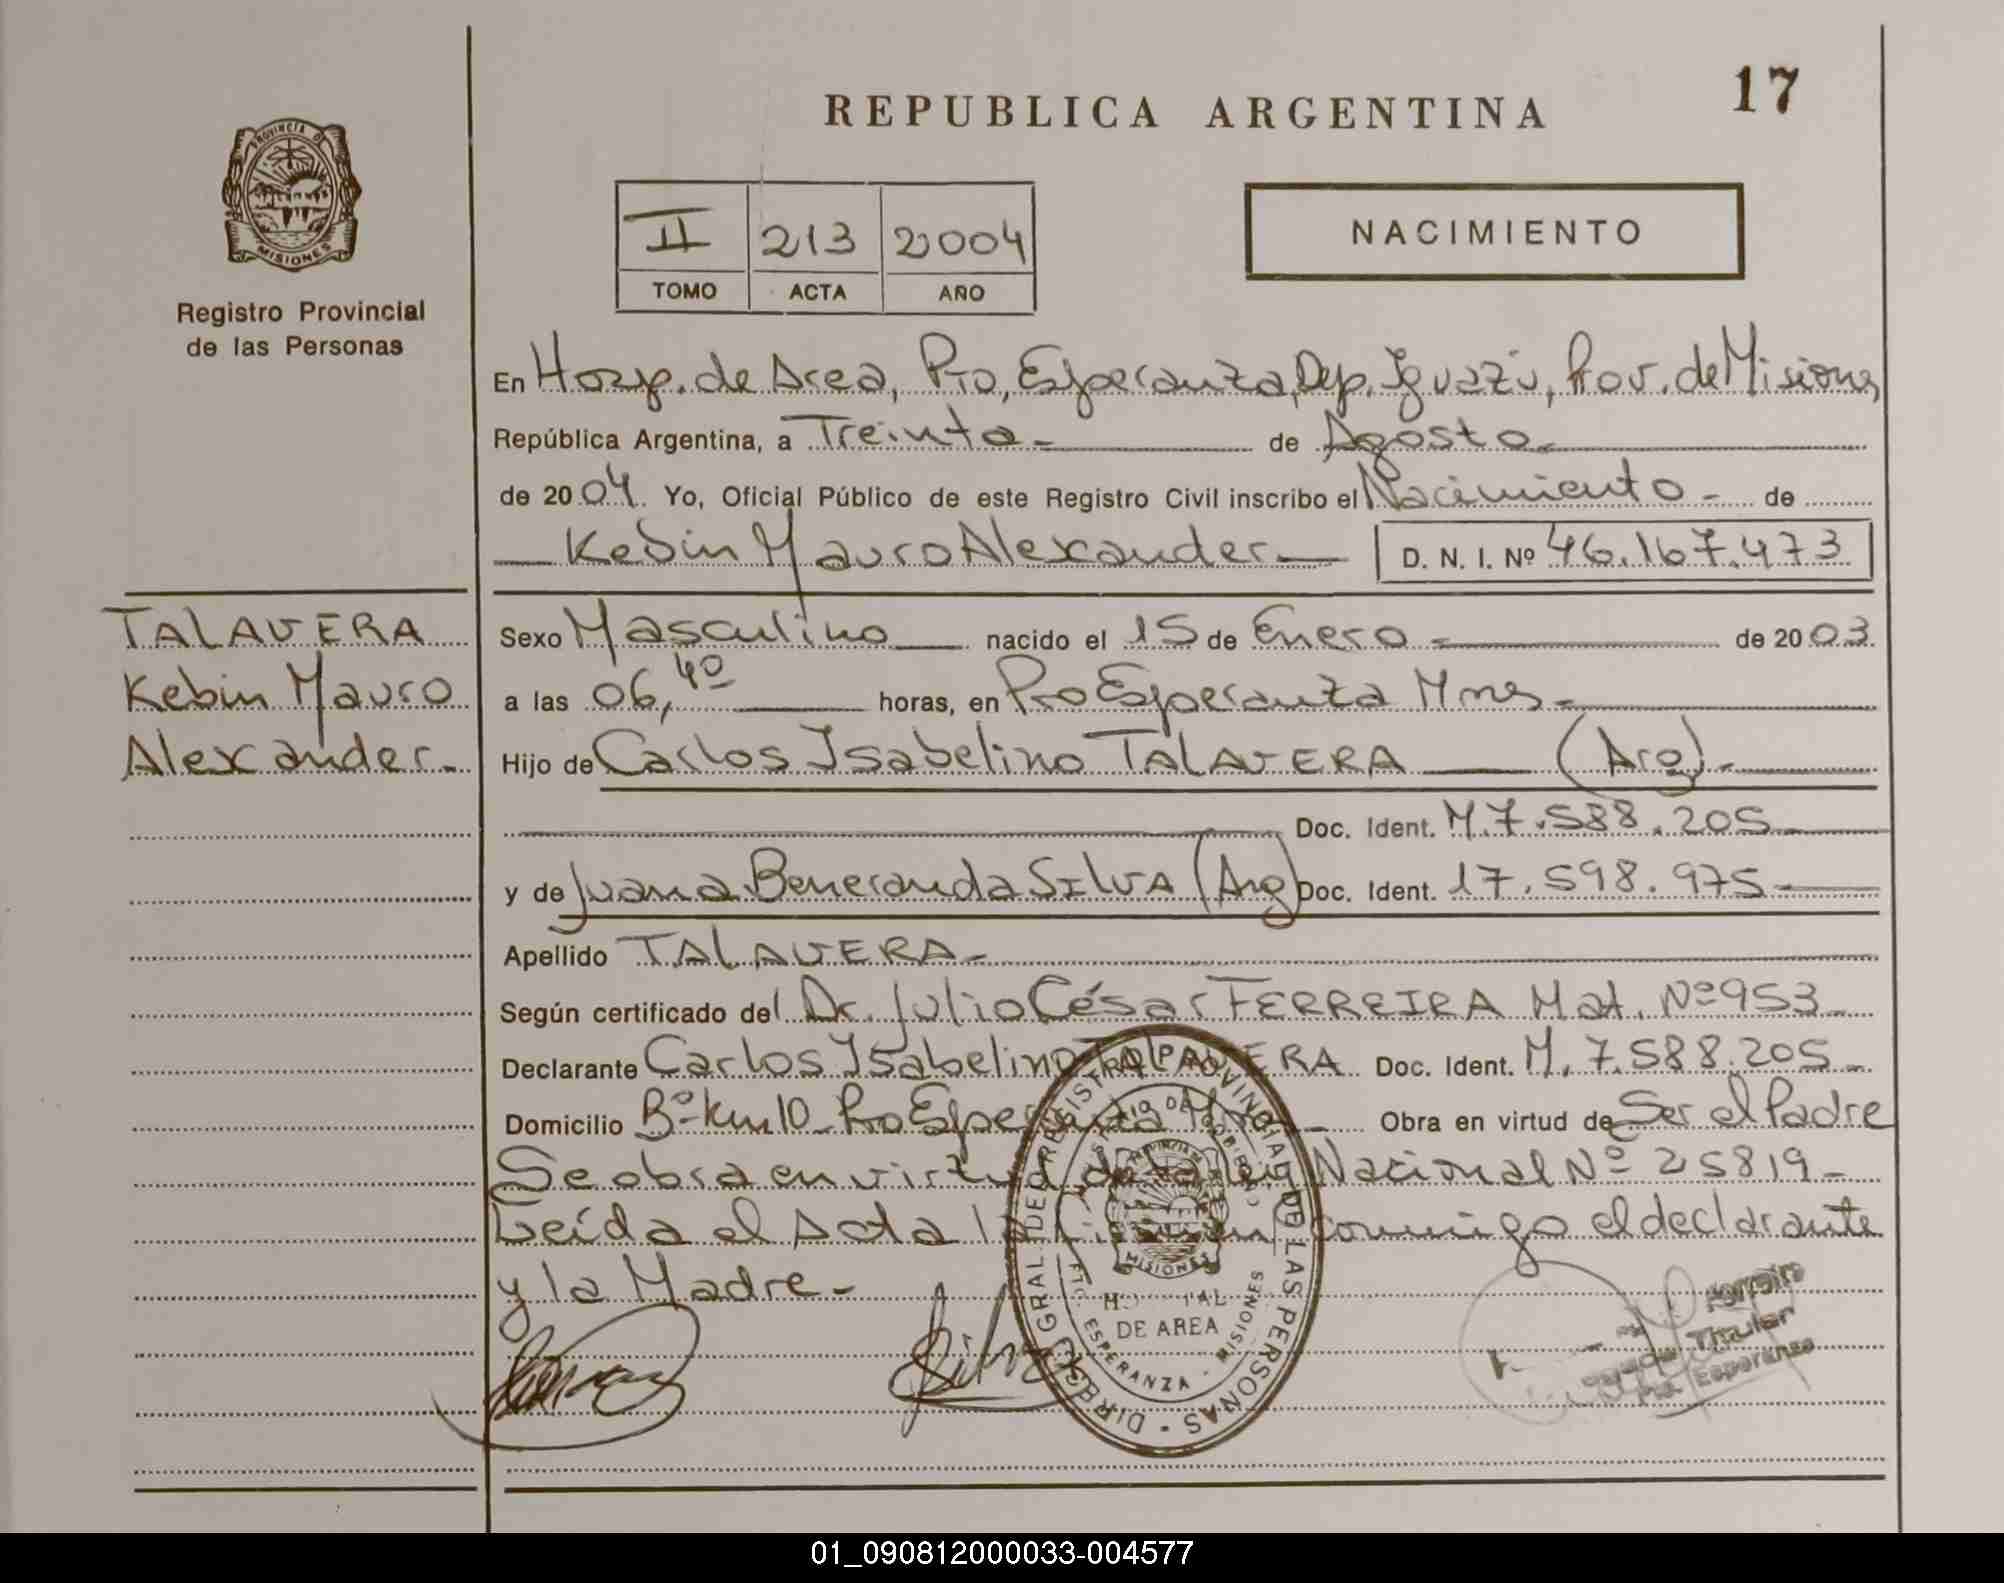 17
REPUBLICA ARGENTINA
PROVINCIA DE
MISIONES
Registro Provincial
de las Personas
II 213 2004
TOMO ACTA AÑO
NACIMIENTO
En Hosp. de Area, Pto, Esperanza, Dep. Iguazú, Prov. de Misiones,
República Argentina, a Treinta - de Agosto -
de 2004. Yo, Oficial Público de este Registro Civil inscribo el Nacimiento - de
Kebin Mauro Alexander D. N. I. Nº 46.167.473
TALAVERA
Kebin Mauro
Alexander -
Sexo Masculino nacido el 15 de Enero - de 2003.
a las 06,40 horas, en Pto Esperanza Mnes -
Hijo de Carlos Isabelino TALAVERA (Arg) -
Doc. Ident. M.7.588.205 -
y de Juana Beneranda SILVA (Arg) Doc. Ident. 17.598.975 -
Apellido TALAVERA -
Según certificado del Dr. Julio César FERREIRA Mat. Nº 953 -
Declarante Carlos Isabelino TALAVERA Doc. Ident. M. 7.588.205 -
Domicilio Bº Km 10 - Pto Esperanza Mnes - Obra en virtud de Ser el Padre
Se obra en virtud de la ley Nacional Nº 25819 -
Leída el Acta la conmigo el declarante
y la Madre -
Silva
DIREC. GRAL. DE REGISTRO PROVINCIAL DE LAS PERSONAS -
PROVINCIA DE
MISIONES
DE AREA
ESPERANZA - MISIONES
Titular
Pto. Esperanza
01_090812000033-004577